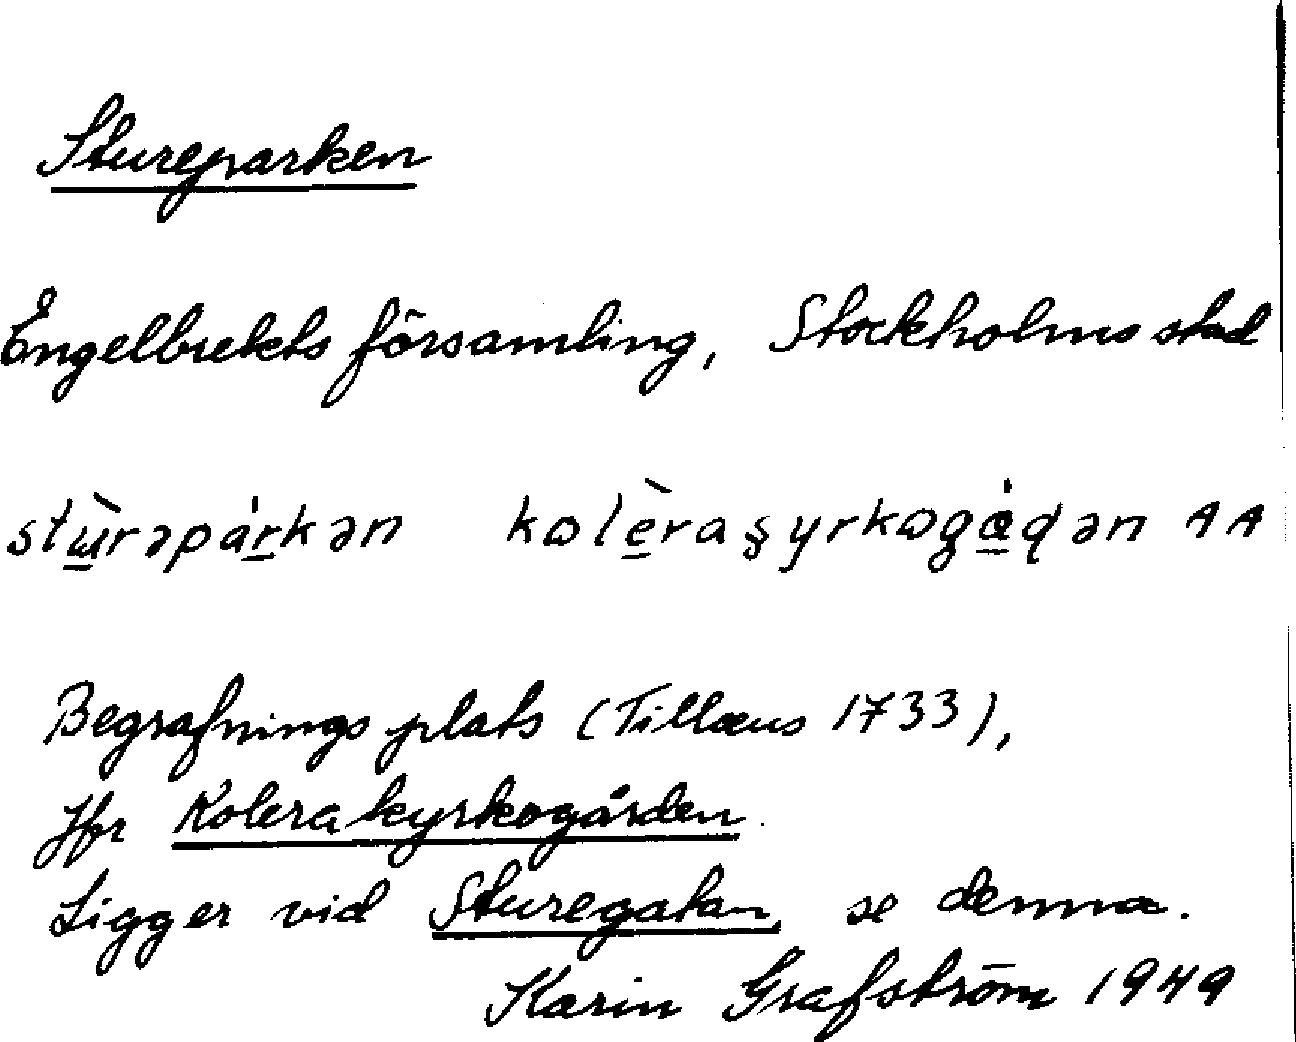 Stureparken
Engelbrekts församling, Stockholms stad
stu̱̇̀rəpáṟkən kolè̱raşyrkogȧ̱qən AA
Begrafningsplats (Tillæus 1733),
Jfr Kolerakyrkogården.
Ligger vid Sturegatan, se denna.
Karin Grafström 1949